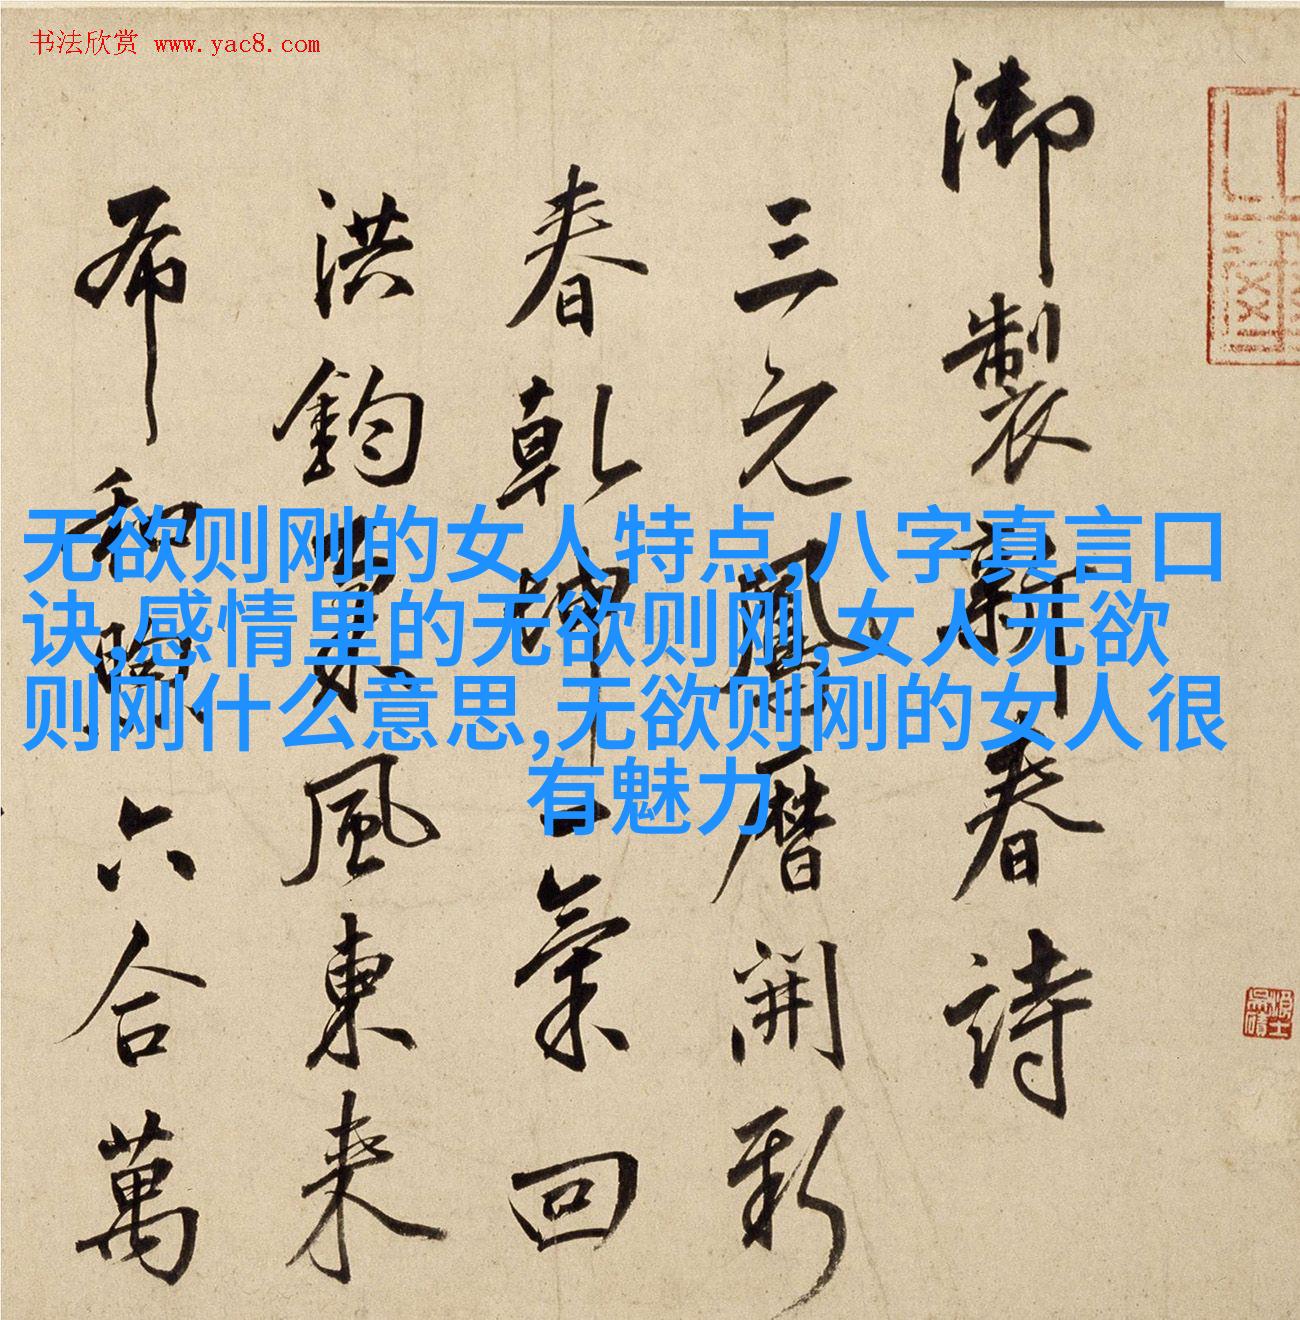 书法欣赏 www.yac8.com
御製新春詩
三元鳳曆開新
春乾坤一氣回
洪鈞東風東来
布和煦六合萬
无欲则刚的女人特点,八字真言口
诀,感情里的无欲则刚,女人无欲
则刚什么意思,无欲则刚的女人很
有魅力